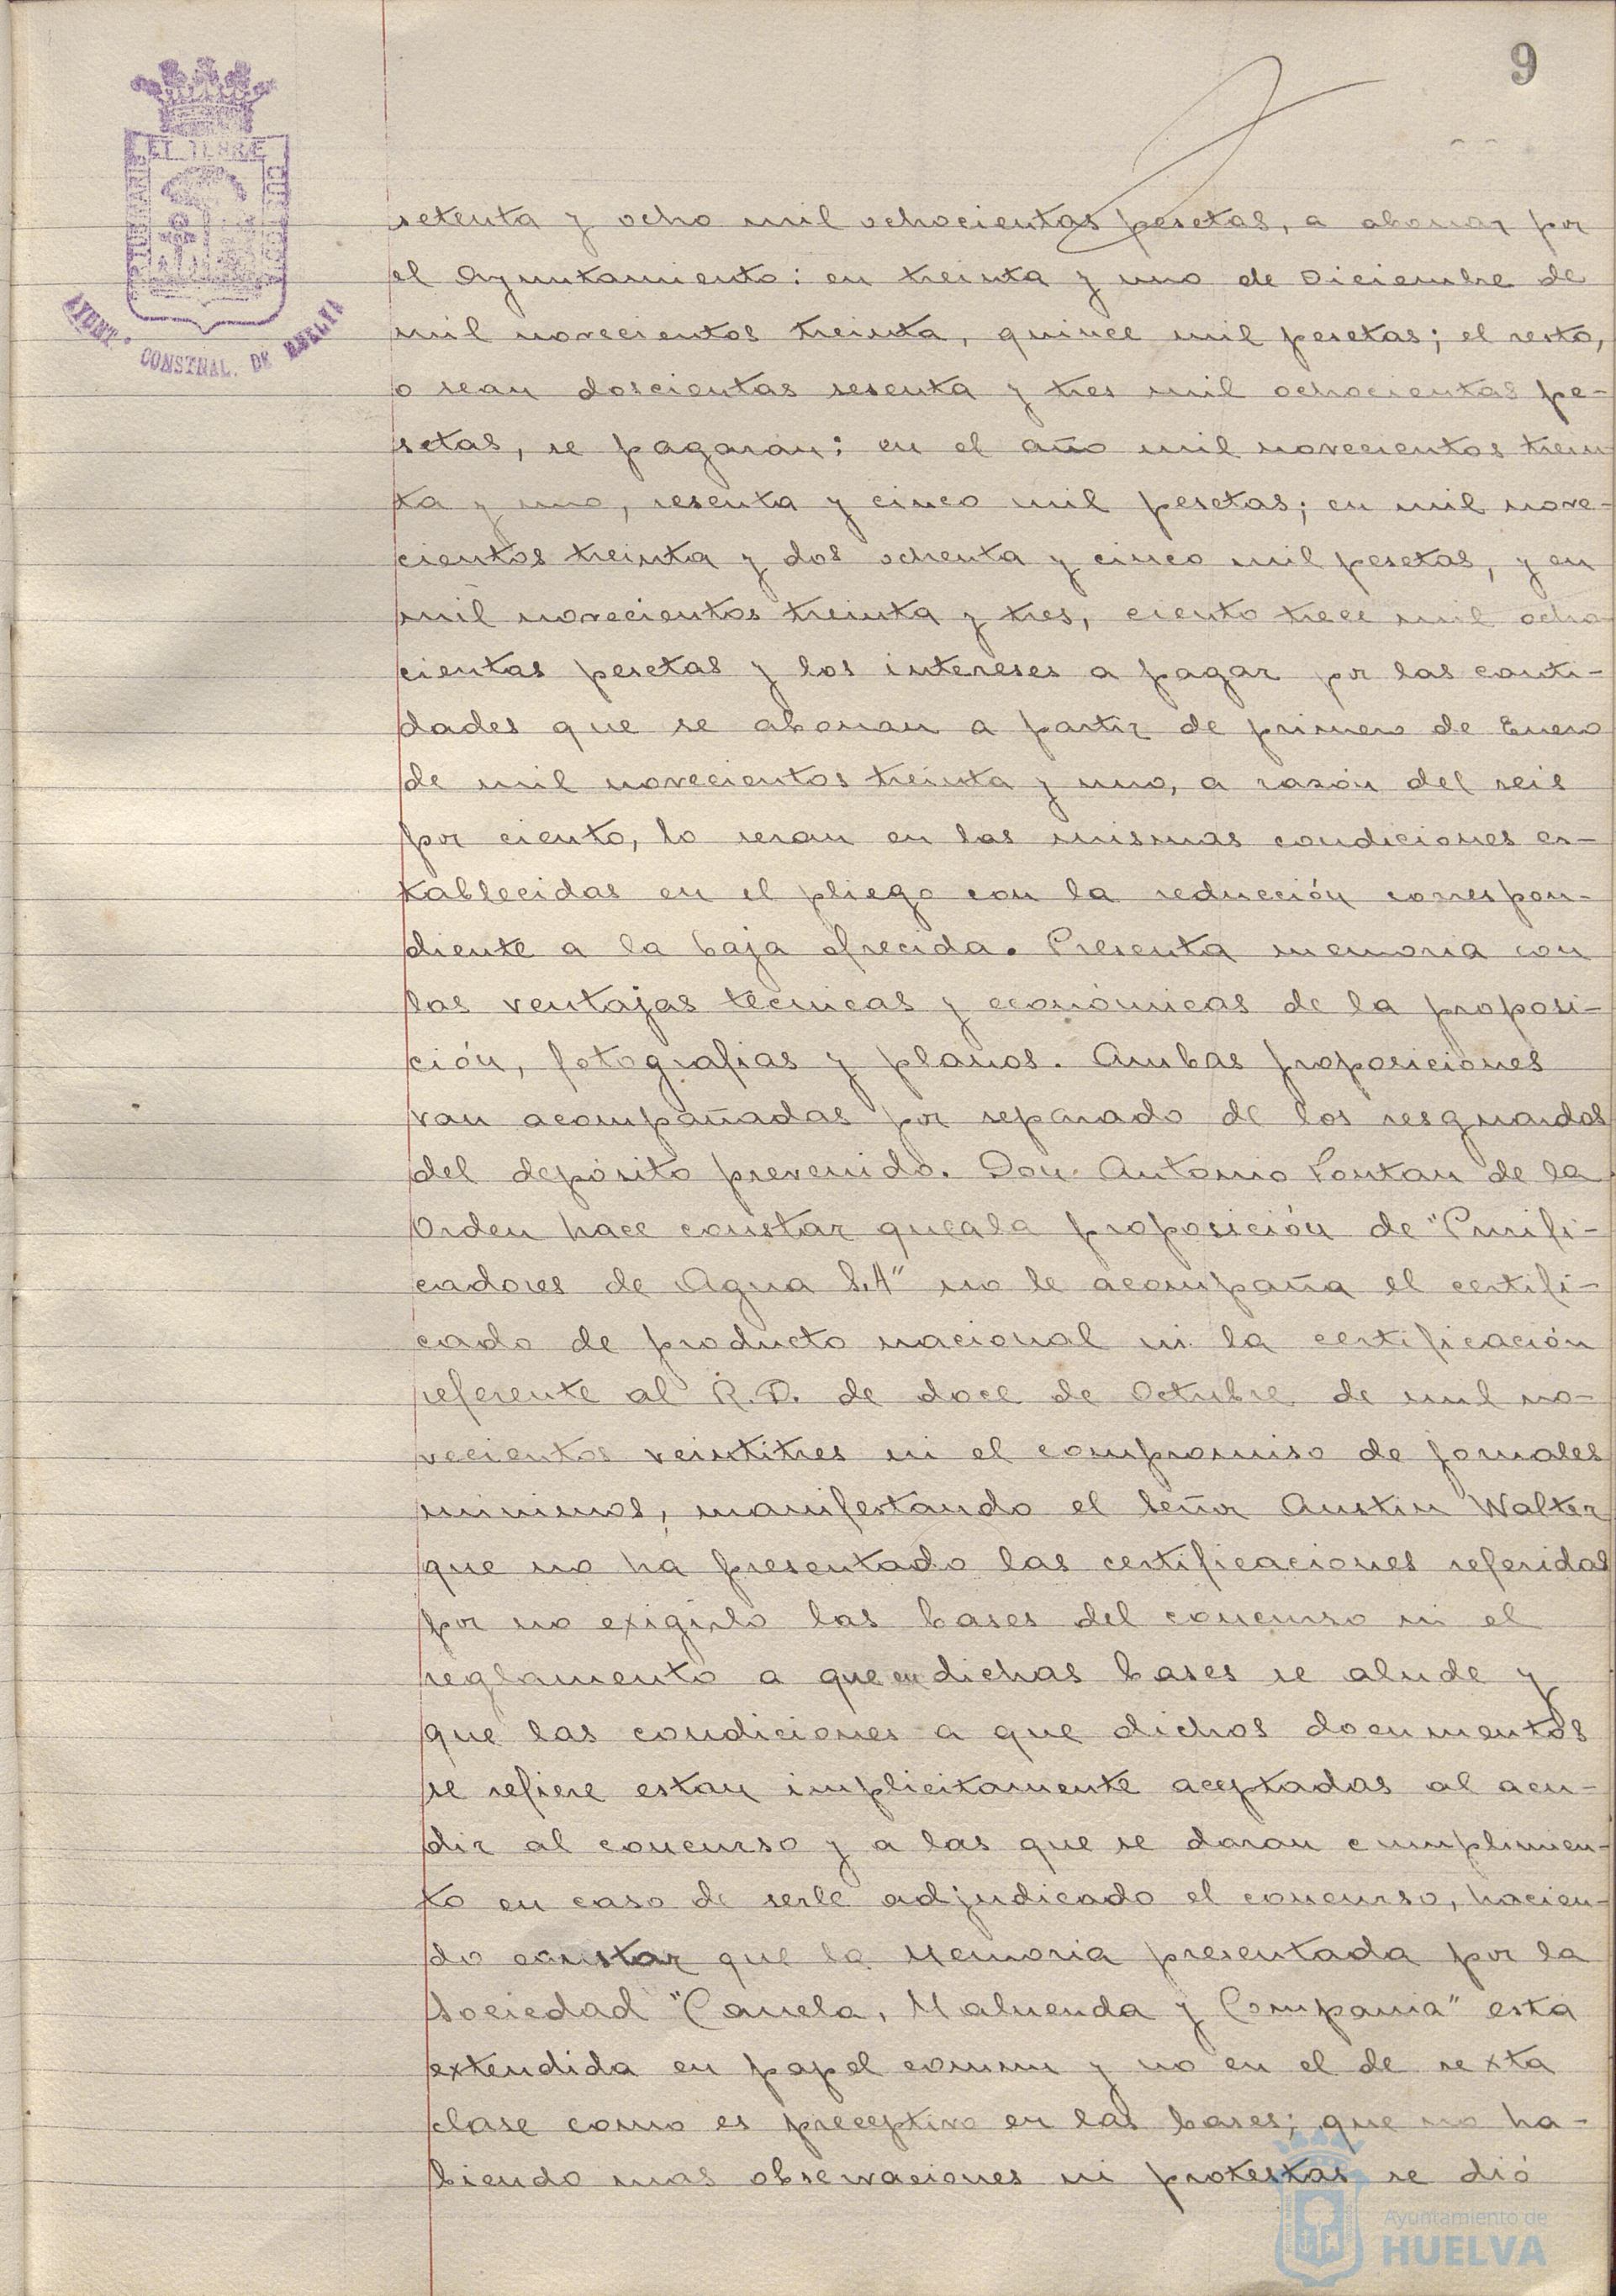 9
ET TERRÆ
PORTUS MARIS
CUSTODIA
AYUNT.º CONSTNAL. DE HUELVA
setenta y ocho mil ochocientas pesetas, a abonar por
el Ayuntamiento: en treinta y uno de Diciembre de
mil novecientos treinta, quince mil pesetas; el resto,
o sean doscientas sesenta y tres mil ochocientas pe-
setas, se pagaran: en el año mil novecientos trein
ta y uno, sesenta y cinco mil pesetas; en mil nove-
cientos treinta y dos ochenta y cinco mil pesetas, y en
mil novecientos treinta y tres, ciento trece mil ocho
cientas pesetas y los intereses a pagar por las canti-
dades que se abonan a partir de primero de Enero
de mil novecientos treinta y uno, a razón del seis
por ciento, lo seran en las mismas condiciones es-
tablecidas en el pliego con la reducción correspon-
diente a la baja ofrecida. Presenta memoria con
las ventajas técnicas y económicas de la proposi-
ción, fotografias y planos. Ambas proposiciones
van acompañadas por separado de los resguardos
del depósito prevenido. Don Antonio Fontan de la
Orden hace constar que a la proposición de "Purifi-
cadores de Agua S.A" no le acompaña el certifi-
cado de producto nacional ni la certificación
referente al R.D. de doce de Octubre de mil no-
vecientos veintitres ni el compromiso de jornales
minimos, manifestando el Señor Austin Walter
que no ha presentado las certificaciones referidas
por no exigirlo las bases del concurso ni el
reglamento a que en dichas bases se alude y
que las condiciones a que dichos documentos
se refiere estan implicitamente aceptadas al acu-
dir al concurso y a las que se daran cumplimien-
to en caso de serle adjudicado el concurso, hacien-
do constar que la Memoria presentada por la
Sociedad "Canela, Maluenda y Compania" está
extendida en papel comun y no en el de sexta
clase como es preceptivo en las bases; que no ha-
biendo mas observaciones ni protestas se dió
Ayuntamiento de
HUELVA